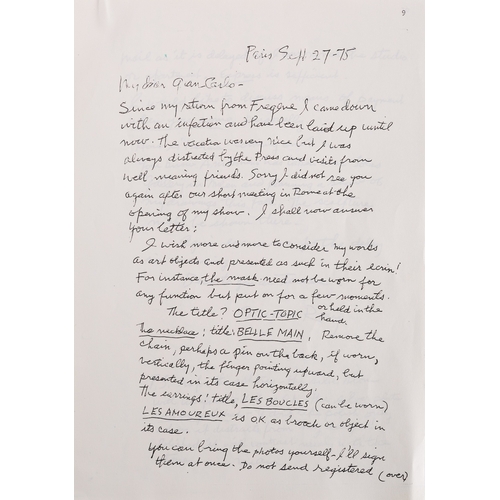 9
Paris Sept 27-75
My dear Gian-Carlo-
Since my return from Fregene I came down
with an infection and have been laid up until
now. The vacation was very nice but I was
always distracted by the Press and visits from
well meaning friends. Sorry I did not see you
again after our short meeting in Rome at the
opening of my show. I shall now answer
your letter:
I wish more and more to consider my works
as art objects and presented as such in their écrin!
For instance, the mask need not be worn for
any function but put on for a few moments.
or held in the hand.
The title? OPTIC-TOPIC
The necklace: title: BELLE MAIN, Remove the
chain, perhaps a pin on the back, if worn,
vertically, the finger pointing upward, but
presented in its case horizontally.
The earrings: title, LES BOUCLES (can be worn)
LES AMOUREUX is OK as brooch or object in
its case.
You can bring the photos yourself - I'll sign
them at once. Do not send registered (over)